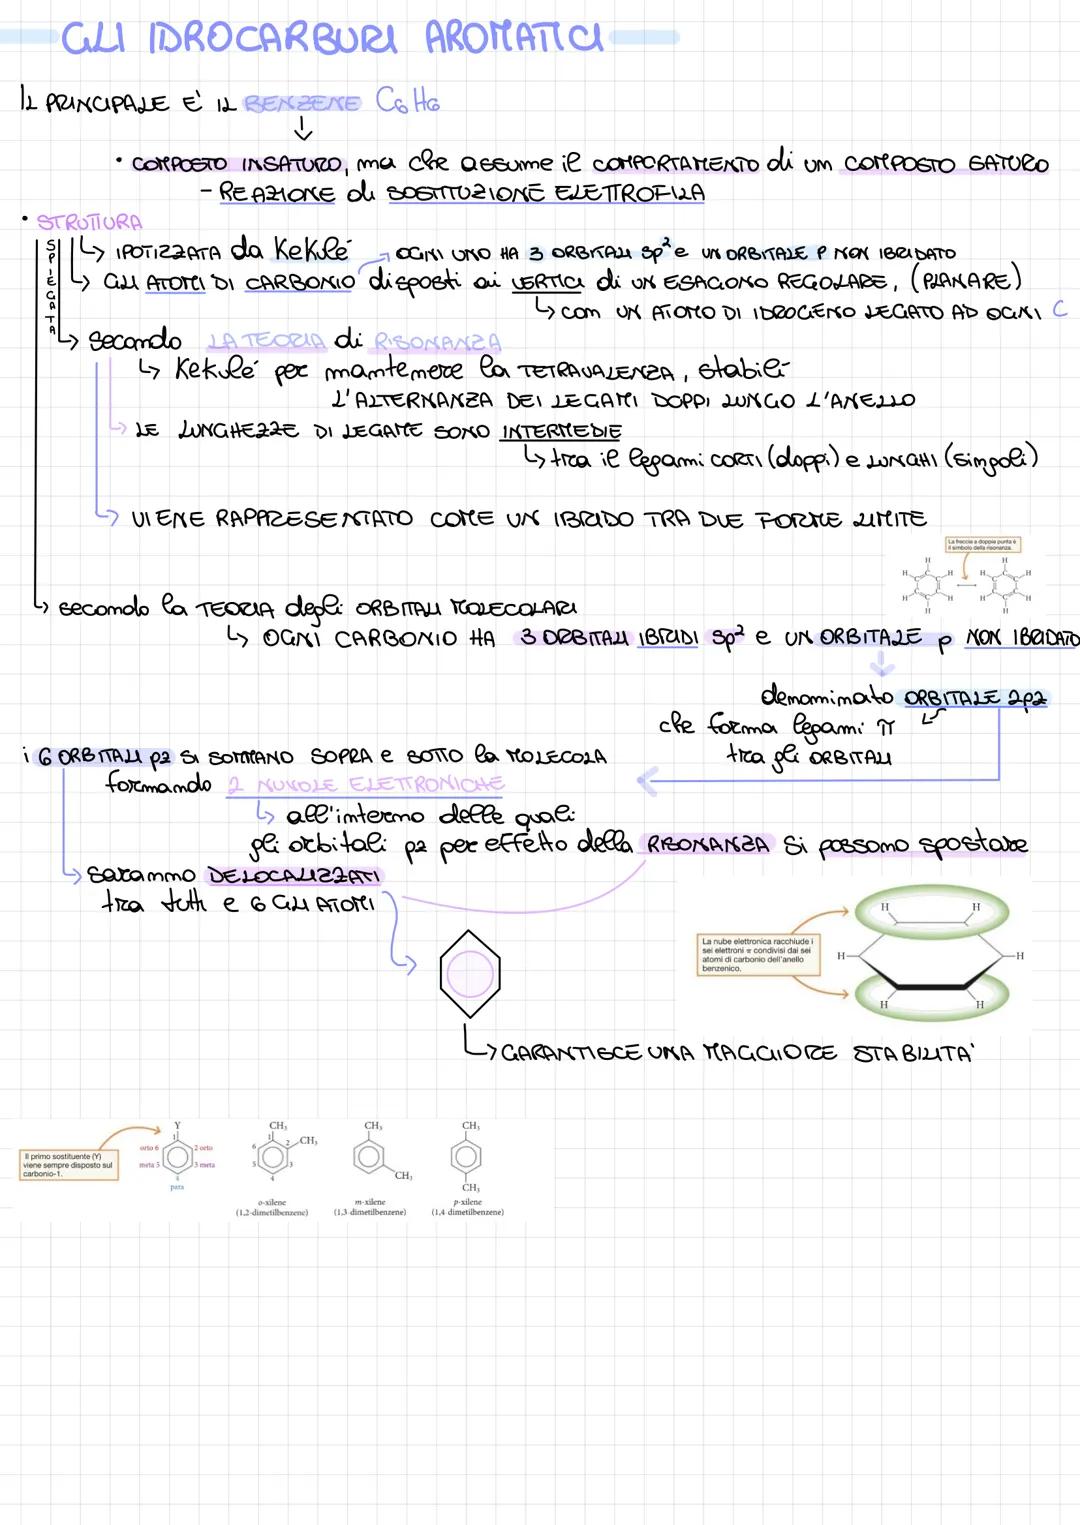 GLI IDROCARBURI AROMATICI
IL PRINCIPALE E' IL BENZENE C6H6
• COMPOSTO INSATURO, ma che assume il COMPORTAMENTO di un COMPOSTO SATURO
- REAZIONE di SOSTITUZIONE ELETTROFILA
• STRUTTURA
SPIEGATA
↳ IPOTIZZATA da Kekulé
→ OGNI UNO HA 3 ORBITALI sp² e UN ORBITALE P NON IBRIDATO
↳ GLI ATOMI DI CARBONIO disposti ai VERTICI di UN ESAGONO REGOLARE, (PLANARE)
↳ con UN ATOMO DI IDROGENO LEGATO AD OGNI C
↳ secondo LA TEORIA di RISONANZA
↳ Kekulé per mantenere la TETRAVALENZA, stabilì
L'ALTERNANZA DEI LEGAMI DOPPI LUNGO L'ANELLO
↳ LE LUNGHEZZE DI LEGAME SONO INTERMEDIE
↳ tra il legami CORTI (doppi) e LUNGHI (singoli)
↳ VIENE RAPPRESENTATO COME UN IBRIDO TRA DUE FORME LIMITE
La freccia a doppia punta è
il simbolo della risonanza.
↳ secondo la TEORIA degli ORBITALI MOLECOLARI
↳ OGNI CARBONIO HA 3 ORBITALI IBRIDI sp² e UN ORBITALE p NON IBRIDATO
denominato ORBITALE 2pz
che forma legami π
tra gli ORBITALI
i 6 ORBITALI pz SI SOMMANO SOPRA e SOTTO la MOLECOLA
formando 2 NUVOLE ELETTRONICHE
↳ all'interno delle quali
gli orbitali pz per effetto della RISONANZA si possono spostare
↳ saranno DELOCALIZZATI
tra tutti e 6 GLI ATOMI
La nube elettronica racchiude i
sei elettroni π condivisi dai sei
atomi di carbonio dell'anello
benzenico.
H H
H H
H H
↳ GARANTISCE UNA MAGGIORE STABILITA'
Il primo sostituente (Y)
viene sempre disposto sul
carbonio-1.
Y
1
orto 6 2 orto
meta 5 3 meta
4
para
CH₃
1
6 2 CH₃
5 3
4
o-xilene
(1,2-dimetilbenzene)
CH₃
CH₃
m-xilene
(1,3-dimetilbenzene)
CH₃
CH₃
p-xilene
(1,4-dimetilbenzene)